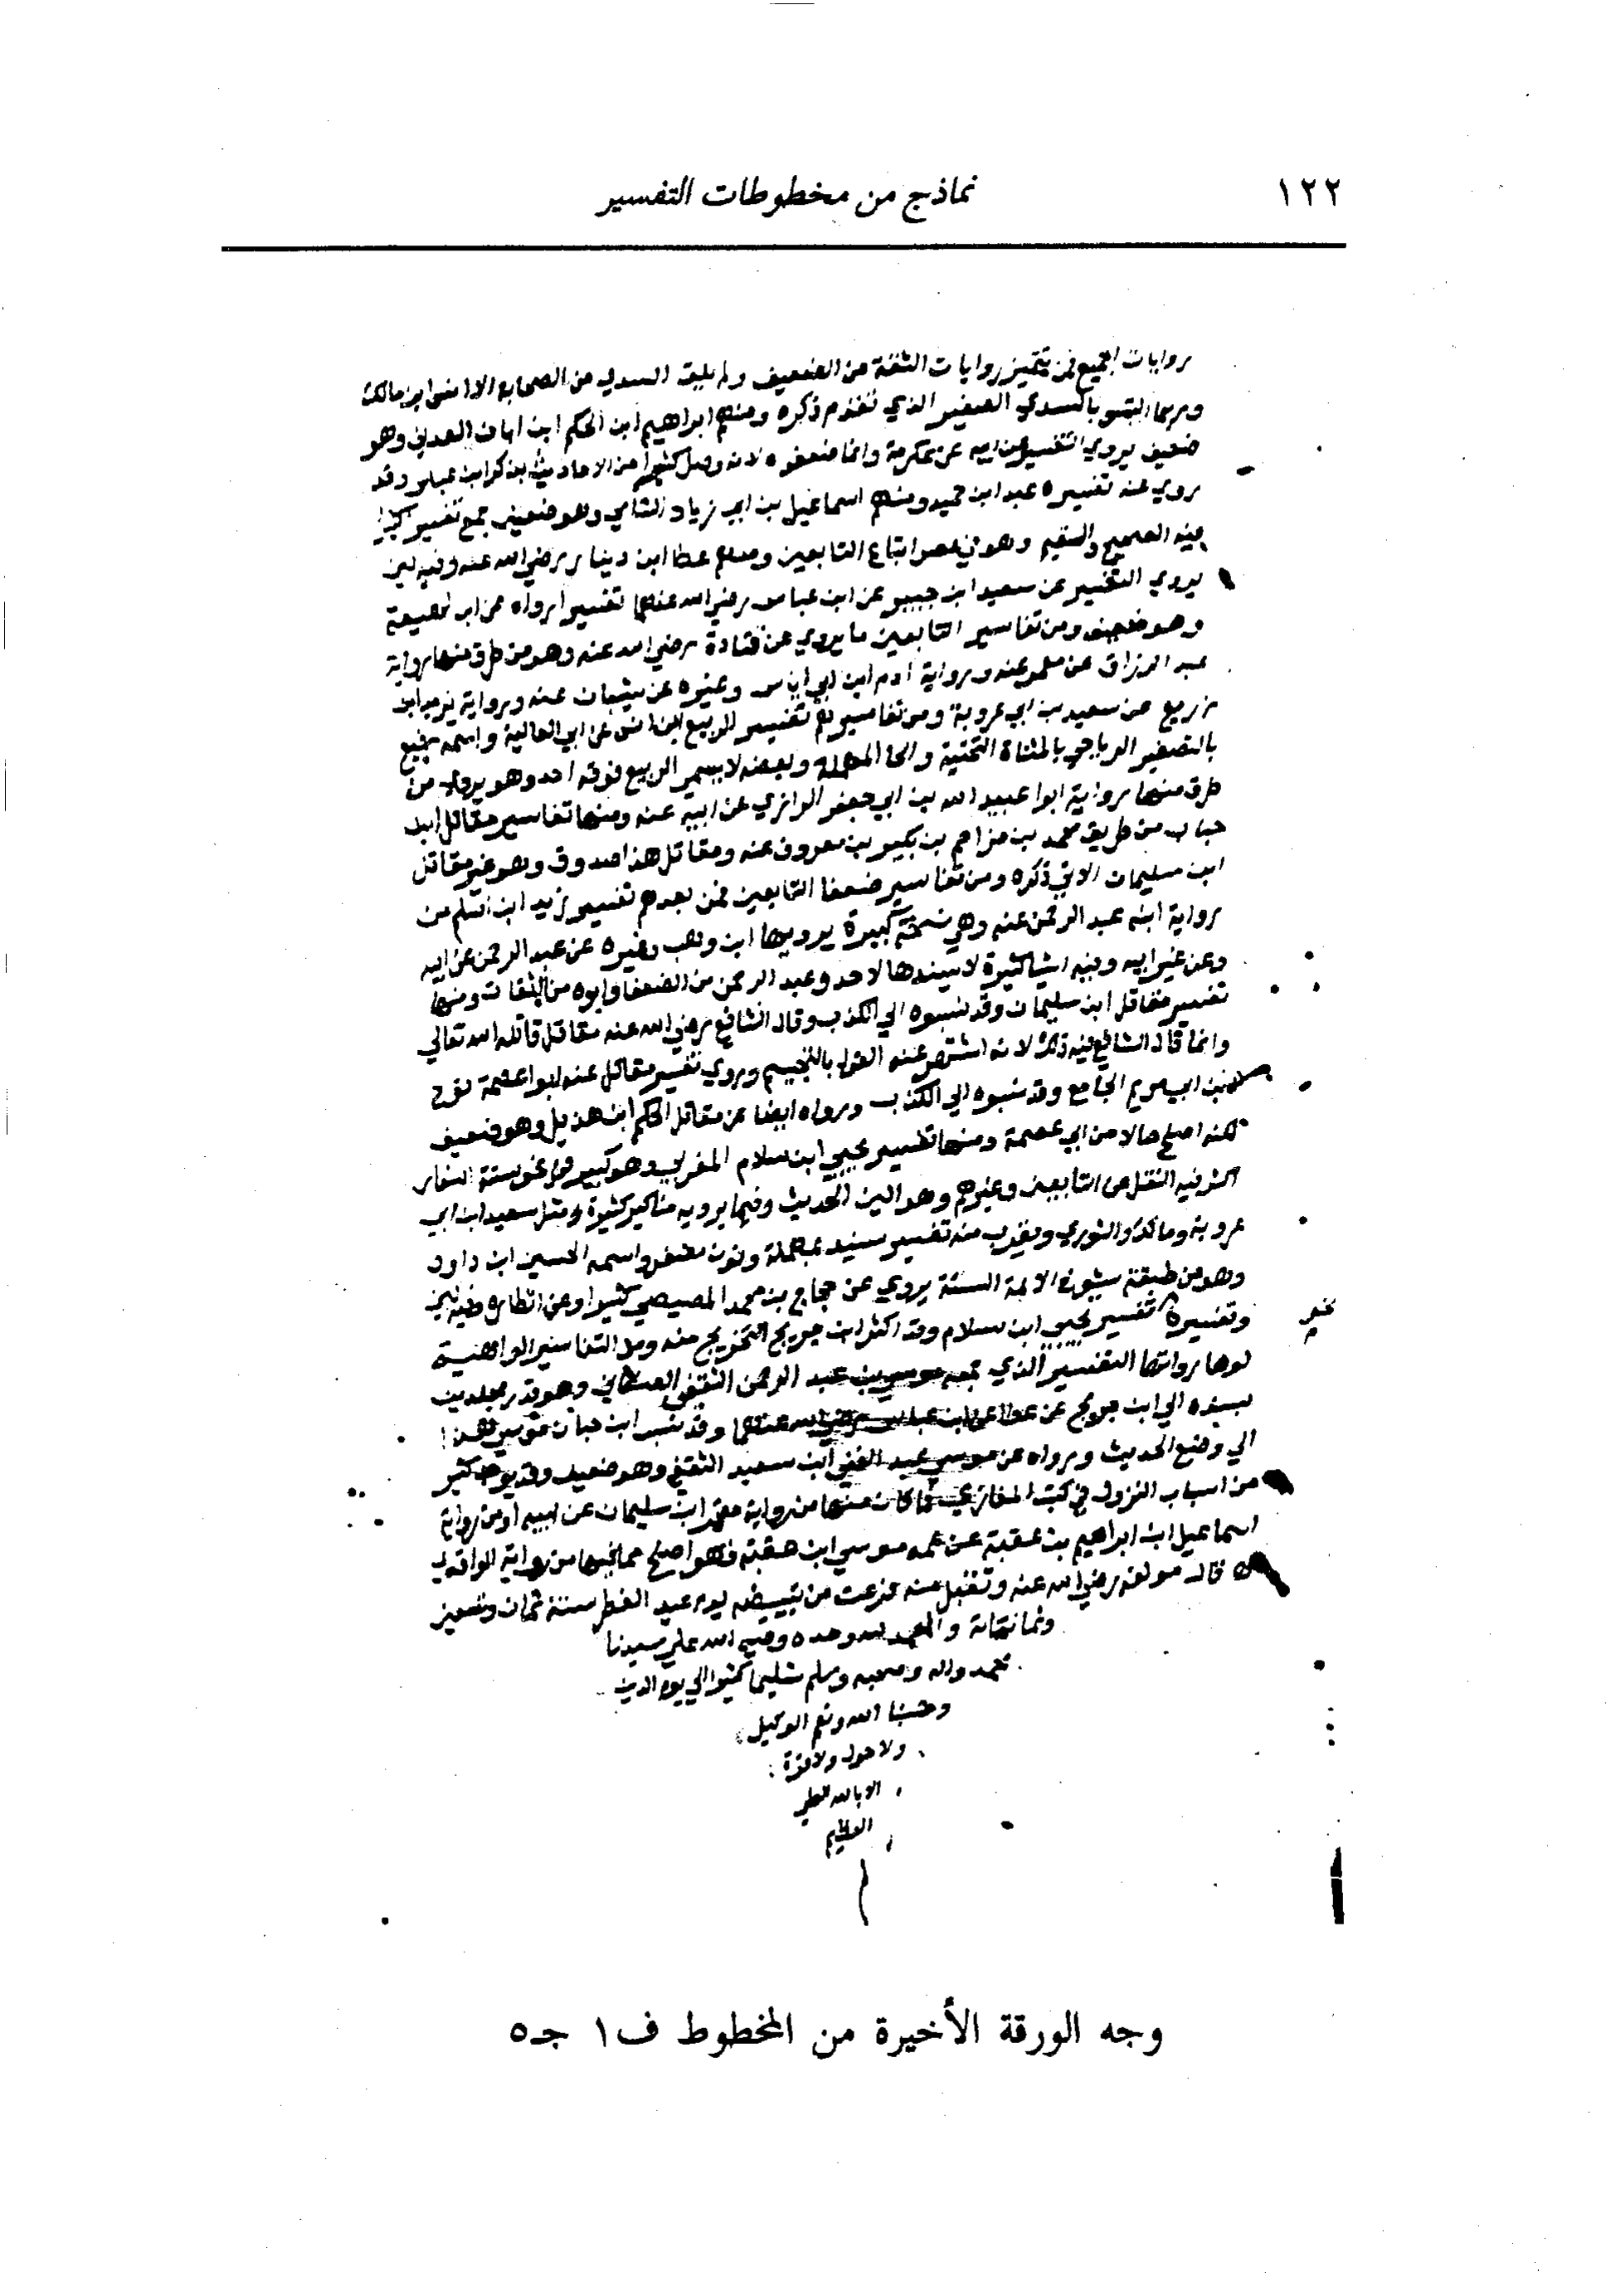 ١٢٢
نماذج من مخطوطات التفسير
روايات الجميع فمن يتميز روايات الثقة من الضعيف ولم يلق السدي من الصحابة الا انس ابن مالك
وربما التبس بالسدي الصغير الذي تقدم ذكره ومنهم ابراهيم ابن الحكم ابن ابان العدني وهو
ضعيف يروي التفسير عن ابيه عن عكرمة وانما ضعفوه لانه وصل كثيرا من الاحاديث بذكر ابن عباس وقد
روي عنه تفسيره عبد ابن حميد ومنهم اسماعيل بن ابي زياد الشامي وهو ضعيف جمع تفسيرا كبيرا
فيه الصحيح والسقيم وهو في عصر اتباع التابعين ومنهم عطا ابن دينار رضي الله عنه وفيه لين
يروي التفسير عن سعيد ابن جبير عن ابن عباس رضي الله عنهما تفسيرا رواه عن ابن لهيعة
وهو ضعيف ومن تفاسير التابعين ما يروي عن قتادة رضي الله عنه وهو من طرق منها رواية
عبد الرزاق عن معمر عنه ورواية ادم ابن ابي اياس وغيره عن شيبان عنه ورواية يزيد ابن
زريع عن سعيد بن ابي عروبة ومن تفاسيرهم تفسير الربيع ابن انس عن ابي العالية واسمه رفيع
بالتصغير الرياحي بالمثناة التحتية والحا المهملة وبعضه لا يسمي الربيع فوقه احد وهو يروي من
طرق منها رواية ابو عبيد الله بن ابي جعفر الرازي عن ابيه عنه ومنها تفاسير مقاتل ابن
حبان من طريق محمد بن مزاحم بن بكير بن معروف عنه ومقاتل هذا صدوق وهو غير مقاتل
ابن سليمان الاتي ذكره ومن تفاسير ضعفا التابعين فمن بعدهم تفسير زيد ابن اسلم من
رواية ابنه عبد الرحمن عنه وهي نسخة كبيرة يرويها ابن وهب وغيره عن عبد الرحمن عن ابيه
وعن غير ابيه وفيه اشيا كثيرة لا يسندها لاحد وعبد الرحمن من الضعفا وابوه من الثقات ومنها
تفسير مقاتل ابن سليمان وقد نسبوه الي الكذب وقال الشافعي رضي الله عنه مقاتل قاتله الله تعالي
وانما قال الشافعي فيه ذلك لانه اشتهر عنه القول بالتجسيم وروي تفسير مقاتل عنه ابوا عصمة نوح
ابن ابي مريم الجامع وقد نسبوه الي الكذب ورواه ايضا عن مقاتل الحكم ابن هذيل وهو ضعيف
لكنه اصلح حالا من ابي عصمة ومنها تفسير يحيي ابن سلام المغربي وهو كبير في نحو ستة اسفار
اكثر فيه النقل عن التابعين وغيرهم وهو الين الحديث وفيما يرويه مناكير كثيرة ومثل سعيد ابن ابي
عروبة ومالك والثوري ويقرب منه تفسير سنيد بمهملة ونون مصغر واسمه الحسين ابن داود
وهو من طبقة شيوخ الايمة الستة يروي عن حجاج بن محمد المصيصي كثيرا وعن
وتفسيره تفسير يحيي ابن سلام وقد اكثر ابن جريج التخريج منه ومن التفاسير الواهية
لوها رواتها التفسير الذي جمعه موسي بن عبد الرحمن الثقفي الصنعاني وهو قدر مجلدين
يسنده الي ابن جريج عن عطا عن ابن عباس رضي الله عنهما وقد نسب ابن حبان موسي هذا
الي وضع الحديث ورواه عن موسي عبد الغني ابن سعيد الثقفي وهو ضعيف وقد يوجد كثير
من اسباب النزول في كتب المغازي فما كان منها من رواية معتمر ابن سليمان عن ابيه او من رواية
اسماعيل ابن ابراهيم بن عقبة عن عمه موسي ابن عقبة فهو اصلح مما فيها من رواية الواقدي
قال مولفه رضي الله عنه وتقبل منه فرغت من تبييضه يوم عيد الفطر سنة ثمان
وثمانمائة والحمد لله وحده وصلي الله علي سيدنا
محمد واله وصحبه وسلم تسليما كثيرا الي يوم الدين
وحسبنا الله ونعم الوكيل
ولا حول ولا قوة
الا بالله العلي
العظيم
وجه الورقة الأخيرة من المخطوط ف١ جـ٥